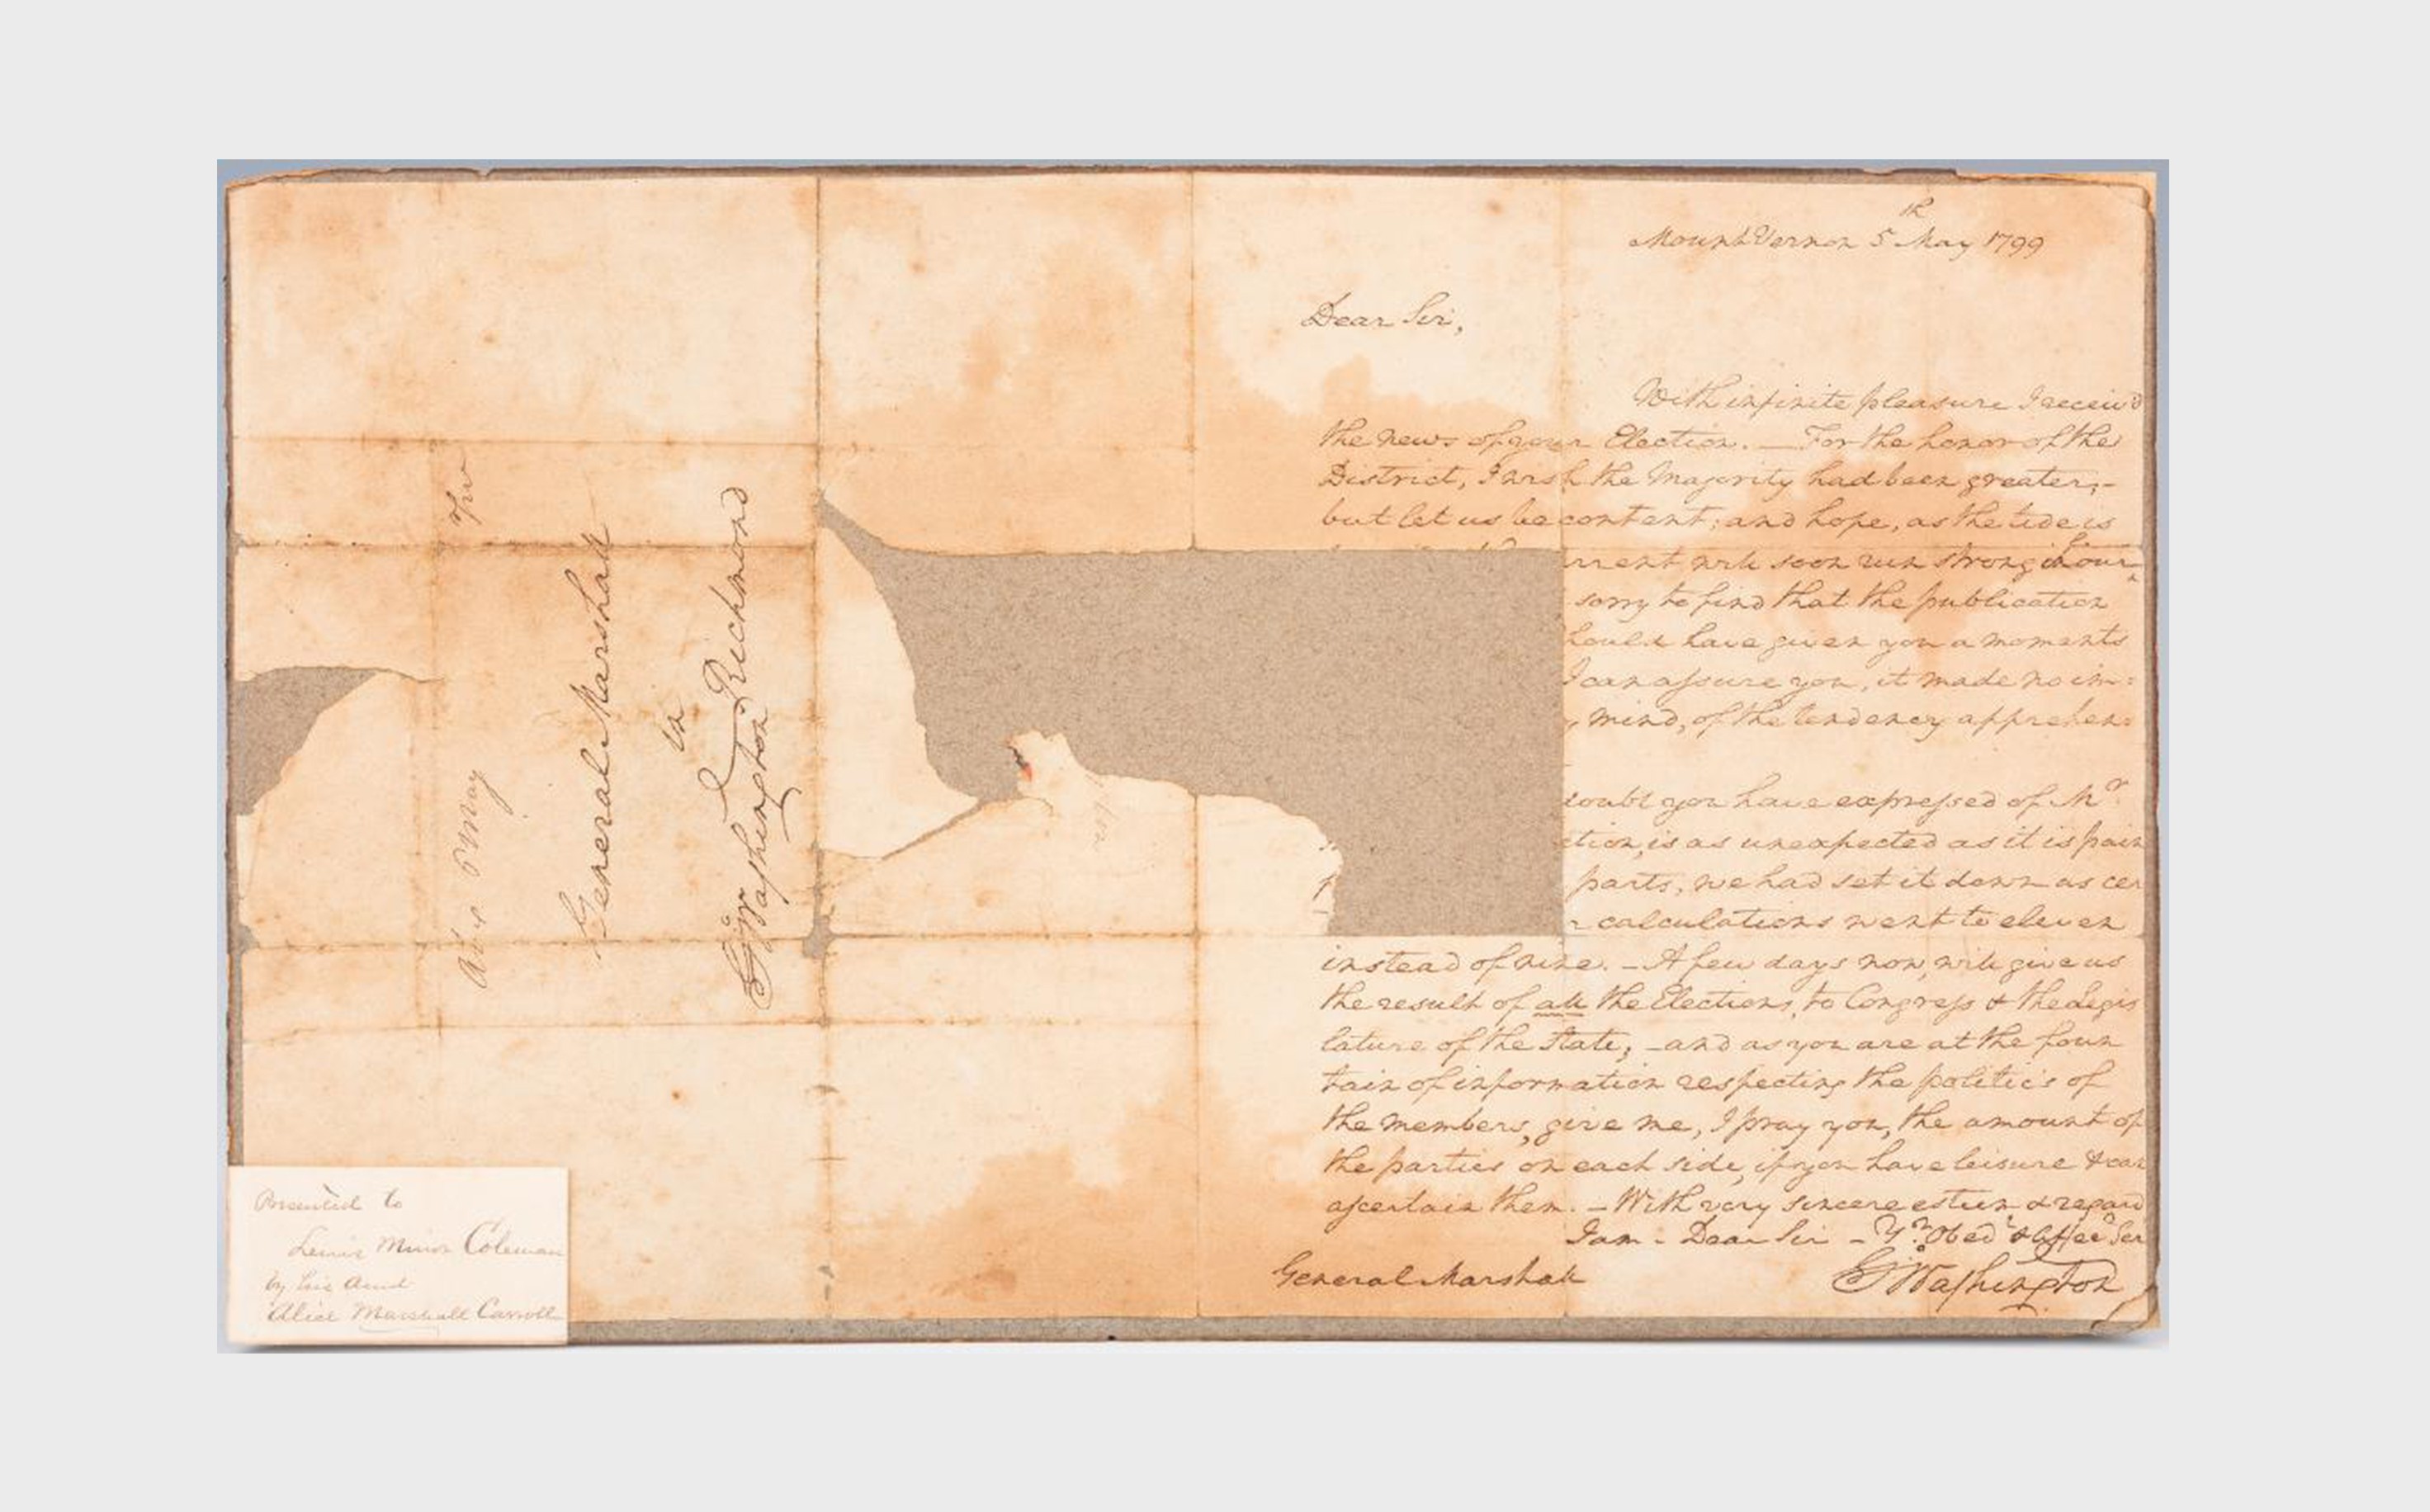 Mount Vernon 5th May 1799
Dear Sir,
With infinite pleasure I receiv'd
the news of your Election. — For the honor of the
District, I wish the Majority had been greater; -
but let us be content; and hope, as the tide is
rrent will soon run strong in your
sorry to find that the publication
hould have given you a moments
I can assure you, it made no im=
mind, of the tendency apprehen=
doubt you have expressed of Mr
ction, is as unexpected as it is pain
parts, we had set it down as cer
calculations went to eleven
instead of nine. - A few days now, will give us
the result of all the Elections, to Congress & the Legis
lature of the State; - and as you are at the foun
tain of information respecting the politics of
the members, give me, I pray you, the amount of
the parties on each side, if you have leisure & can
ascertain them. - With very sincere esteem & regard
I am - Dear Sir - Yr. Obedt & Affecte Ser
Go: Washington
General Marshall
General Marshall
in
Richmond
Go: Washington
5 May
Presented to
Lewis Minor Coleman
by his Aunt
Alice Marshall Carroll